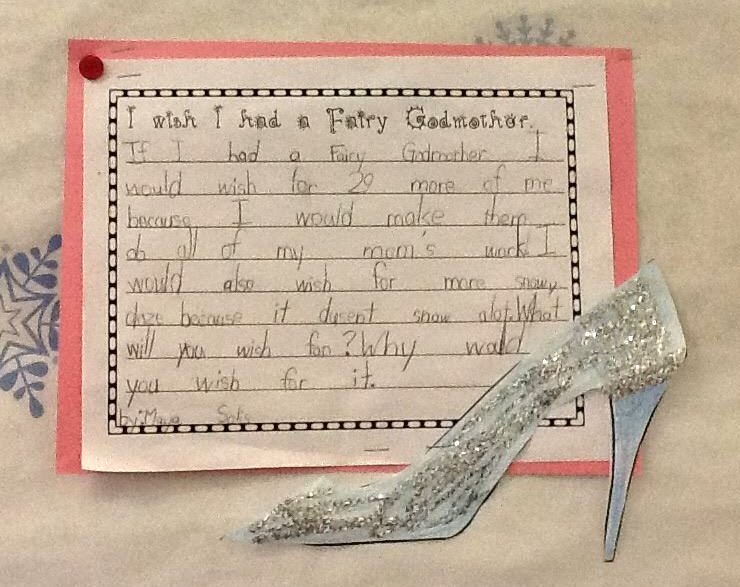 I wish I had a Fairy Godmother.
If I had a Fairy Godmother I
would wish for 29 more of me
because I would make them
do all of my mom's work. I
would also wish for more snowy
daze because it dusent snow alot. What
will you wish for? Why wold
you wish for it.
by: Maya